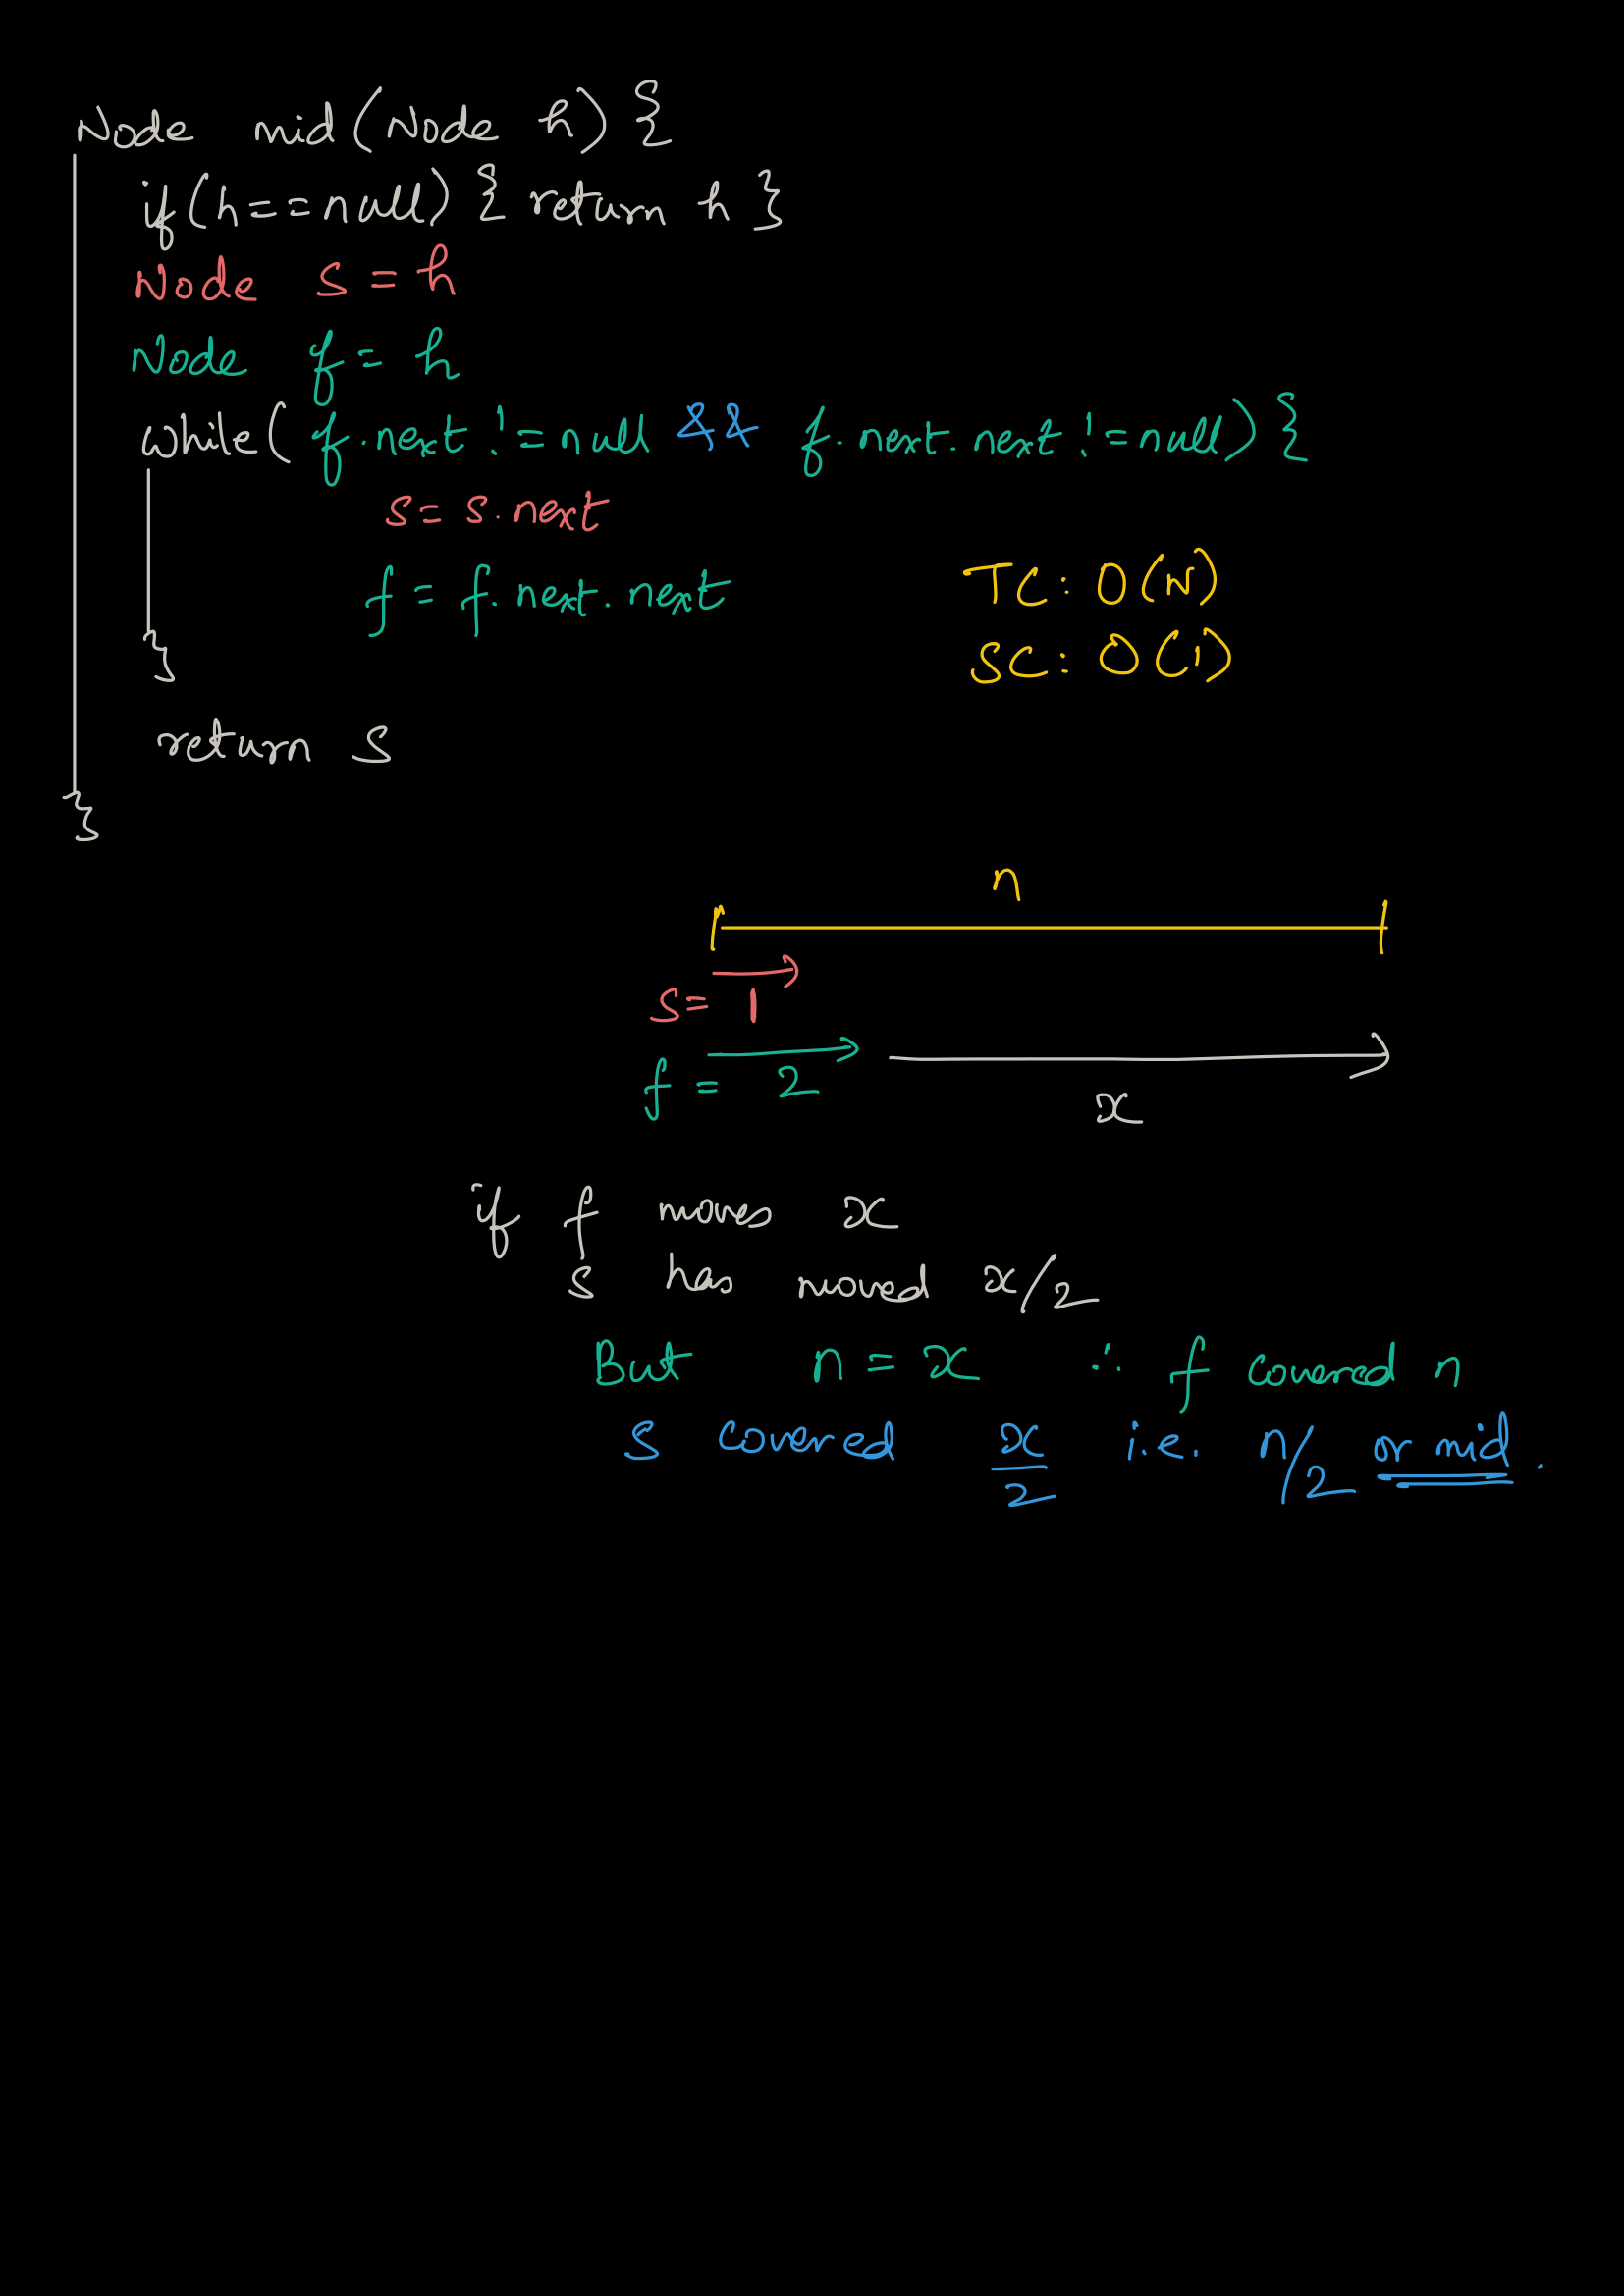 Node mid(Node h) {
if(h==null) { return h }
Node s = h
Node f = h
while( f.next != null && f.next.next != null) {
s = s.next
f = f.next.next
TC: O(N)
}
SC: O(1)
return s
}
n
s = 1
f = 2
x
if f moves x
s has moved x/2
But n = x ∴ f covered n
s covered x/2 i.e. n/2 or mid.